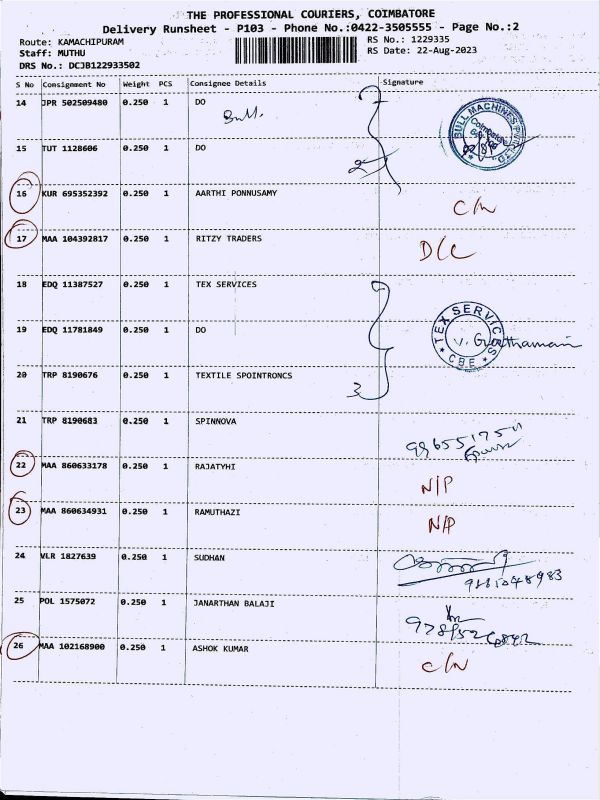 THE PROFESSIONAL COURIERS, COIMBATORE
Delivery Runsheet - P103 - Phone No.:0422-3505555 - Page No.:2
Route: KAMACHIPURAM RS No.: 1229335
Staff: MUTHU RS Date: 22-Aug-2023
DRS No.: DCJB122933502
S No Consignment No Weight PCS Consignee Details Signature
14 JPR 502509480 0.250 1 DO
Bull. BULL MACHINES PVT LTD
15 TUT 1128606 0.250 1 DO
16 KUR 695352392 0.250 1 AARTHI PONNUSAMY
C/N
17 MAA 104392817 0.250 1 RITZY TRADERS
D/C
18 EDQ 11387527 0.250 1 TEX SERVICES
19 EDQ 11781849 0.250 1 DO TEX SERVICES CBE
20 TRP 8190676 0.250 1 TEXTILE SPOINTRONCS
3
21 TRP 8190683 0.250 1 SPINNOVA
22 MAA 860633178 0.250 1 RAJATYHI
N/P
23 MAA 860634931 0.250 1 RAMUTHAZI
N/P
24 VLR 1827639 0.250 1 SUDHAN
25 POL 1575072 0.250 1 JANARTHAN BALAJI
26 MAA 102168900 0.250 1 ASHOK KUMAR
C/N